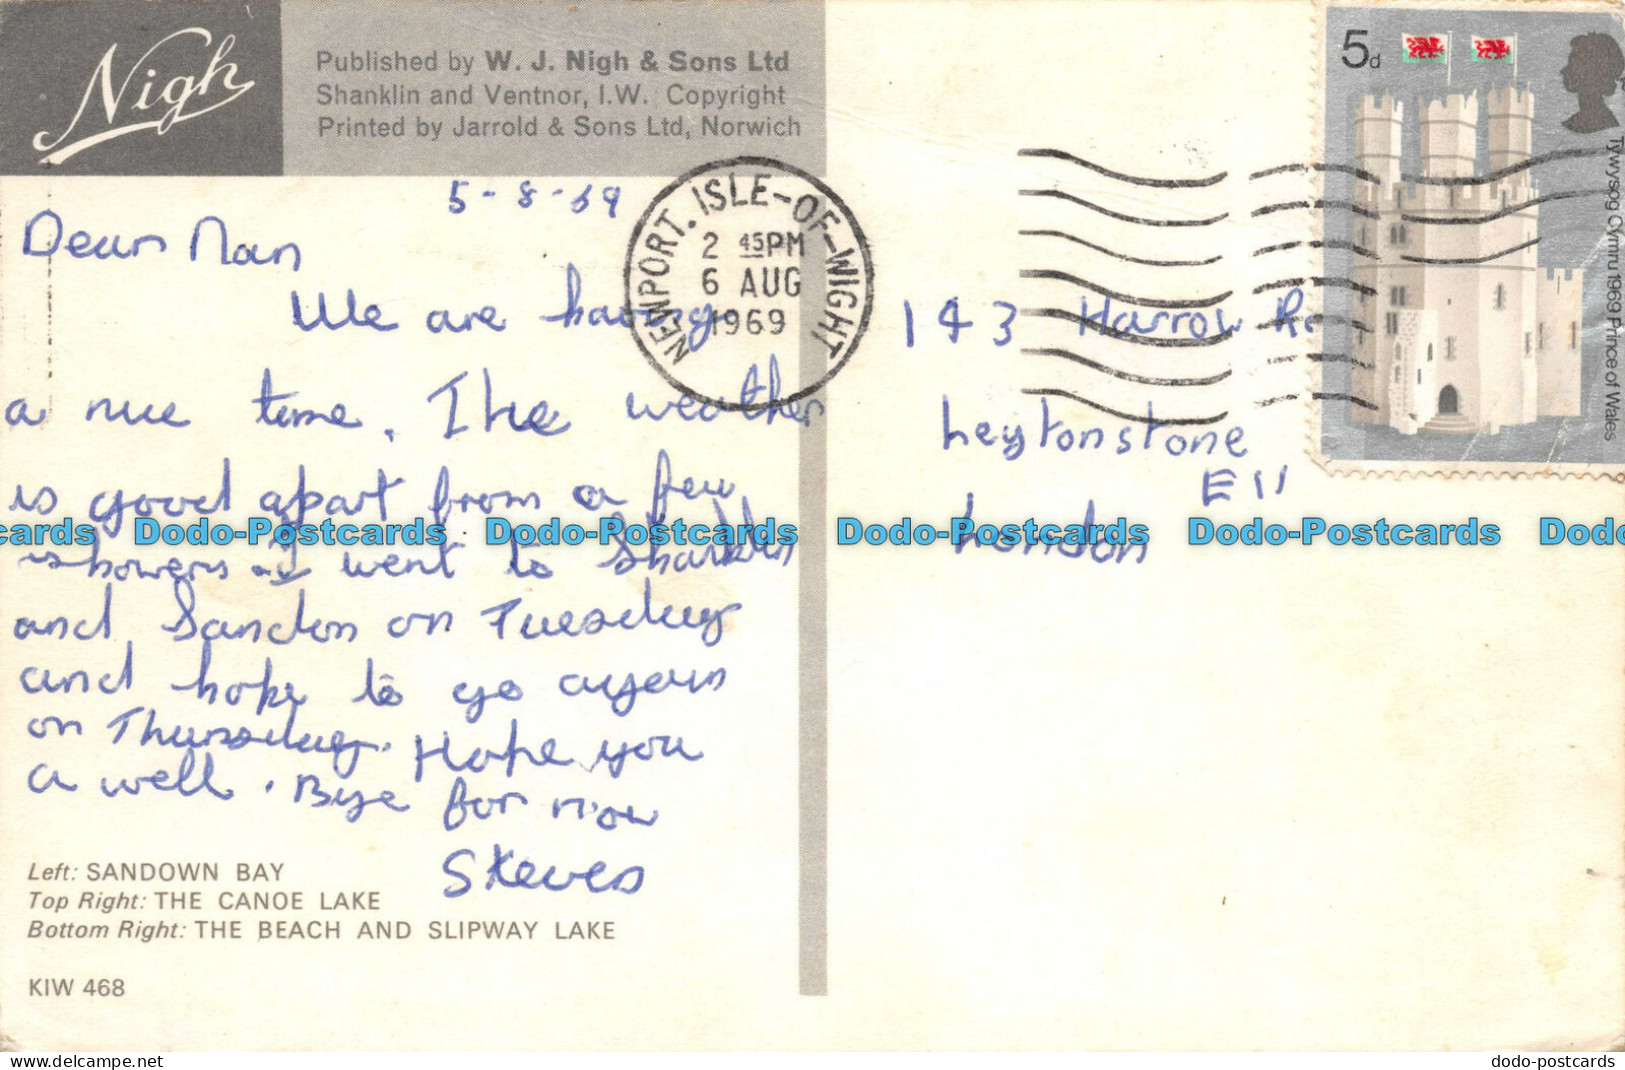 Nigh
Published by W. J. Nigh & Sons Ltd
Shanklin and Ventnor, I.W. Copyright
Printed by Jarrold & Sons Ltd, Norwich
5-8-69
Dear Nan
We are having
a nice time. The weather
is good apart from a few
showers. I went to Shanklin
and Sandon on Tuesday
and hope to go again
on Thursday. Hope you
a well. Bye for now
Steves
Left: SANDOWN BAY
Top Right: THE CANOE LAKE
Bottom Right: THE BEACH AND SLIPWAY LAKE
KIW 468
NEWPORT. ISLE-OF-WIGHT
2 45PM
6 AUG
1969
5d
Tywysog Cymru 1969 Prince of Wales
143 Harrow
Leytonstone
E11
London
Dodo-Postcards Dodo-Postcards Dodo-Postcards
dodo-postcards
delcampe.net